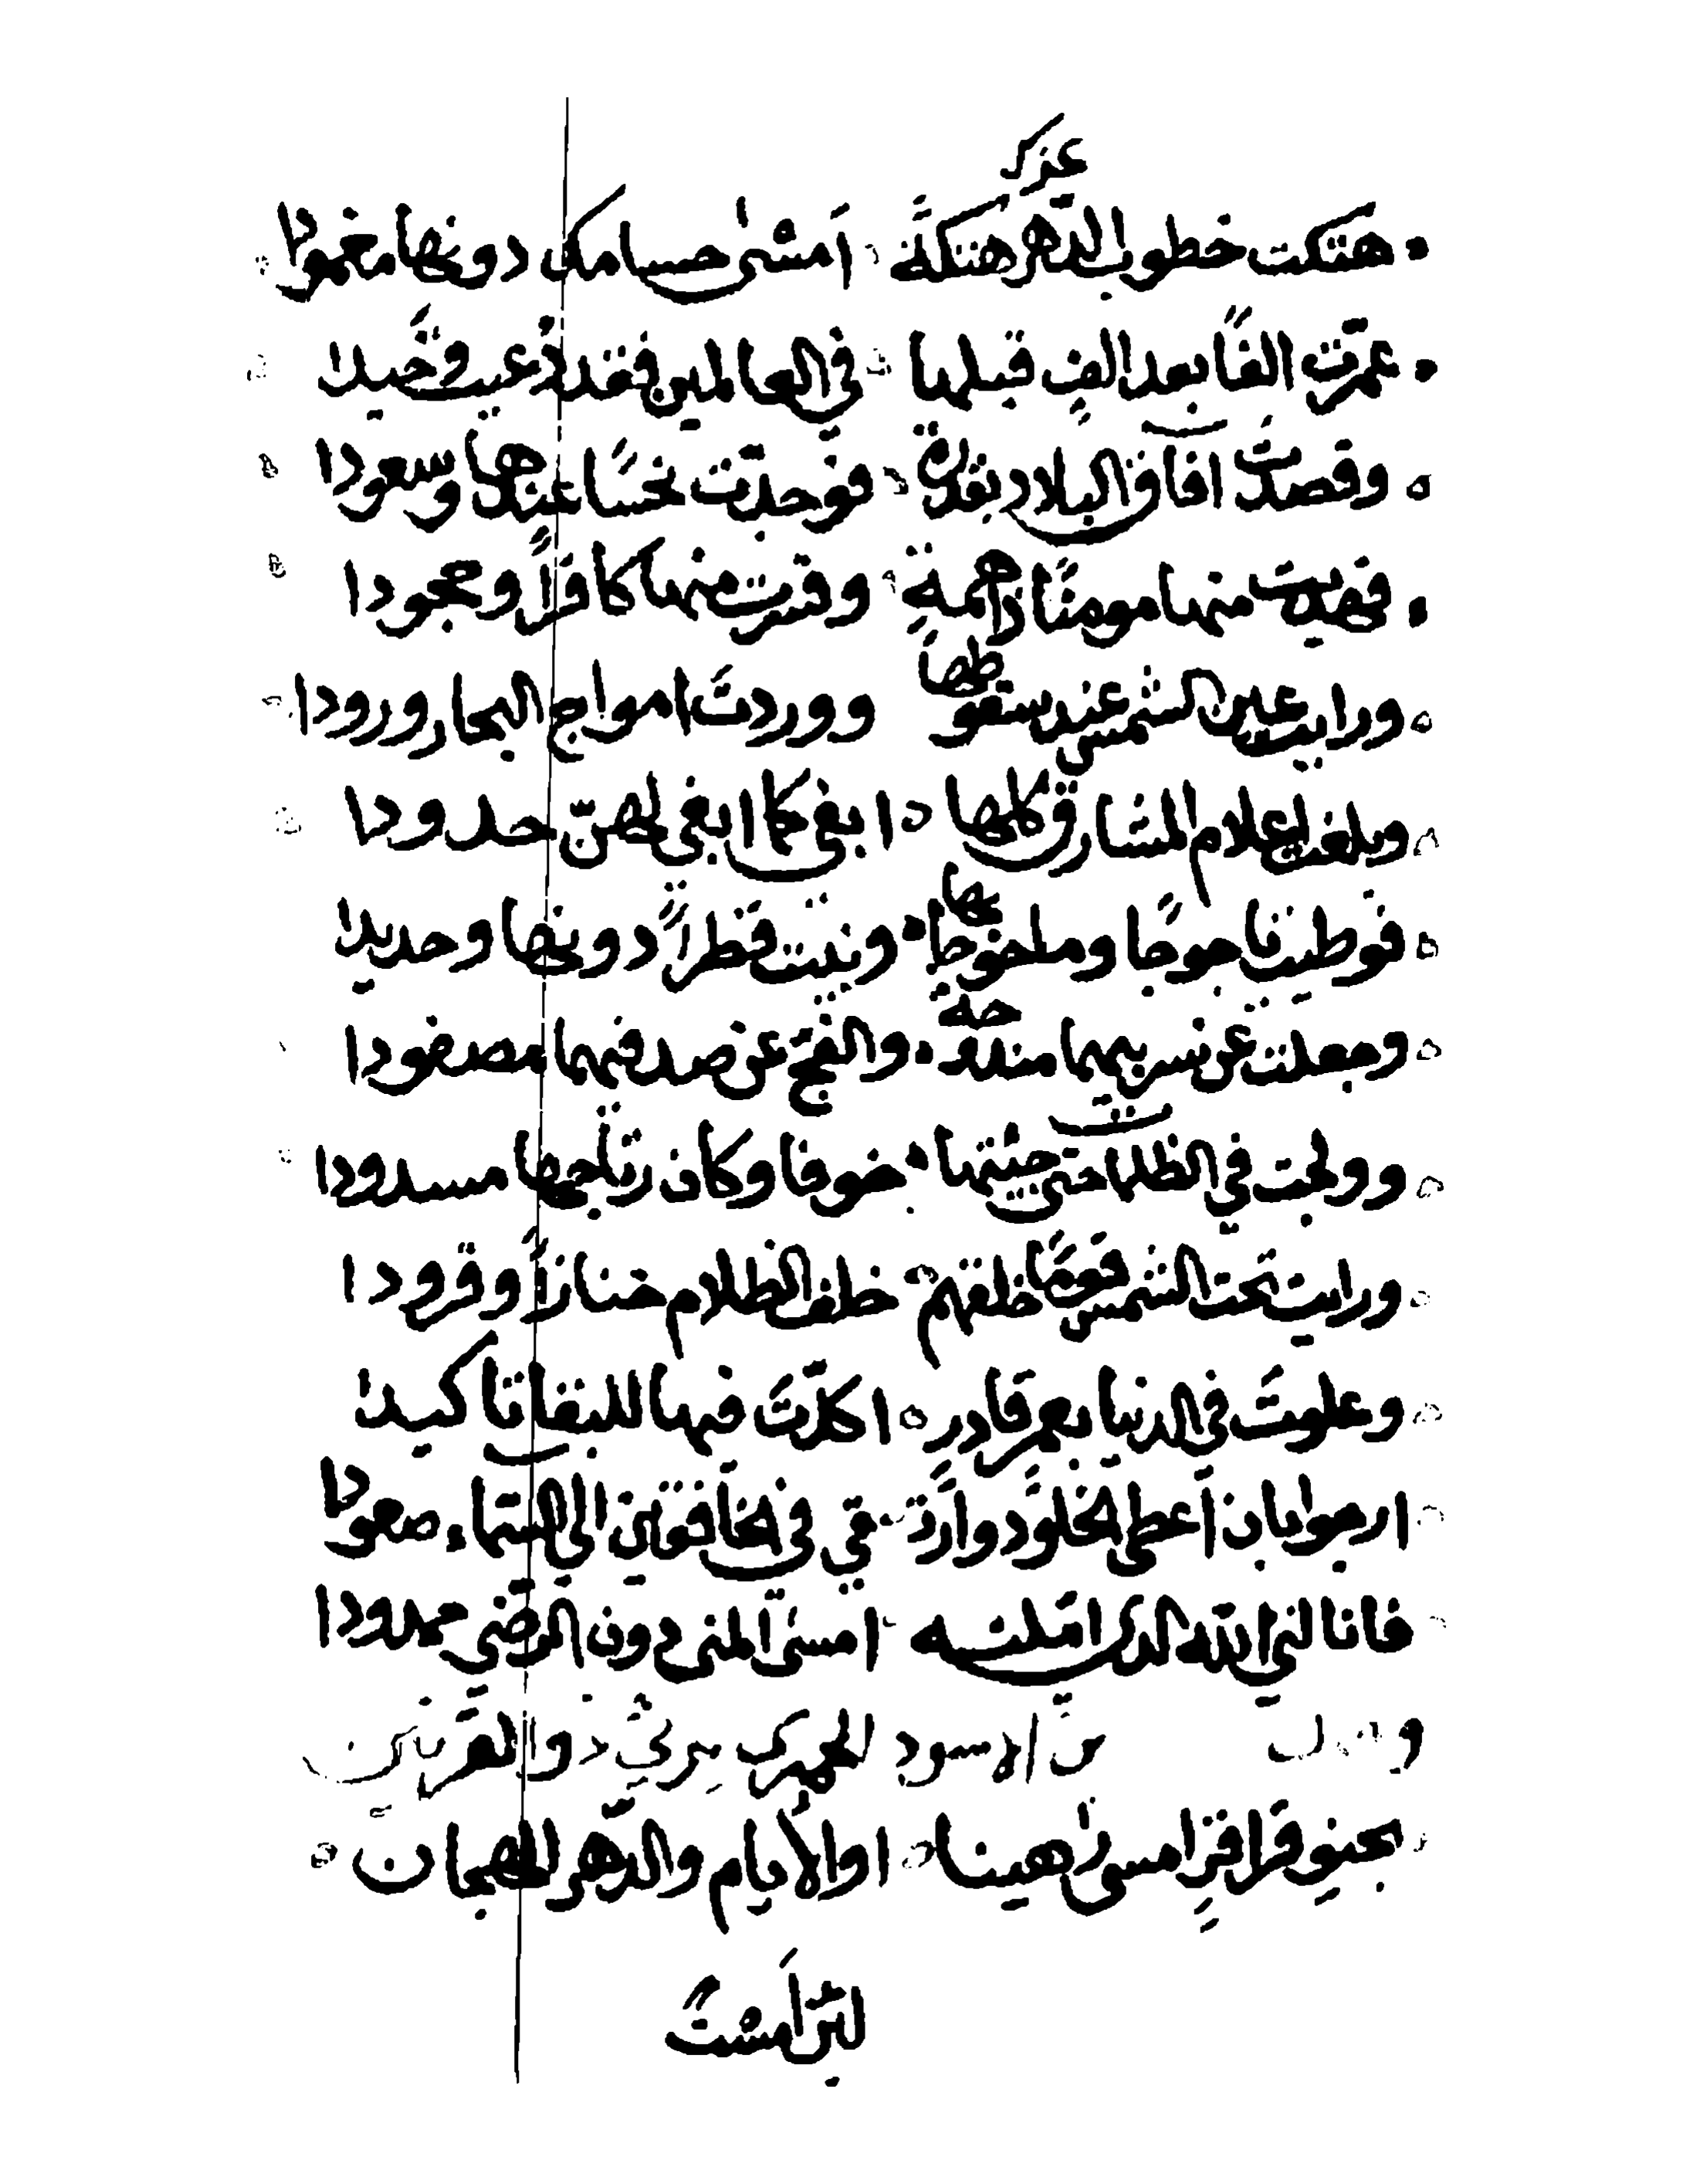 عزك
هتكت خطوب الدهر هتكة امسى حسامك دونها مغمودا
عمرت الفًا بعد الفٍ قبلها في العالمين فقدت غير وحيدا
وقصدت افاق البلاد بقدرة فوجدت نحسًا عندها وسعودا
فهديت منها مومنًا ذا همة وقترت منها كافرًا وجحودا
ورايت عين الشمس عند سقوطها ووردت امواج البحار ورودا
وبلغت اعلام المشارق كلها ابغي كما ابغي لهنّ حدودا
فوطيت ياجوجًا وماجوجا بها وبنيت قطراً دونها وحديدا
وجعلت عن سربيهما مندوحة والفج عن صدفيهما مصفودا
وولجت في الظلمات حتى جيتها خوفا وكان رتاجها مسدودا
ورايت تحت الشمس قومًا خلقهم خلف الظلام خنازرًا وقرودا
وعلوت في الدنيا بعمر قادر اكدّت فيها للبقا تاكيدا
ارجوا بان اعطى الخلود وارتقي في الخافقين الى السماء صعودا
فانا لني الله الذي املته امسى المنى دون الرضي ممدودا
و الاسود الحميري يرثي ذوالقرنين
بحنو قراقرٍ امسى رهينا اوالأيام والدهر الهجان
لئن امست